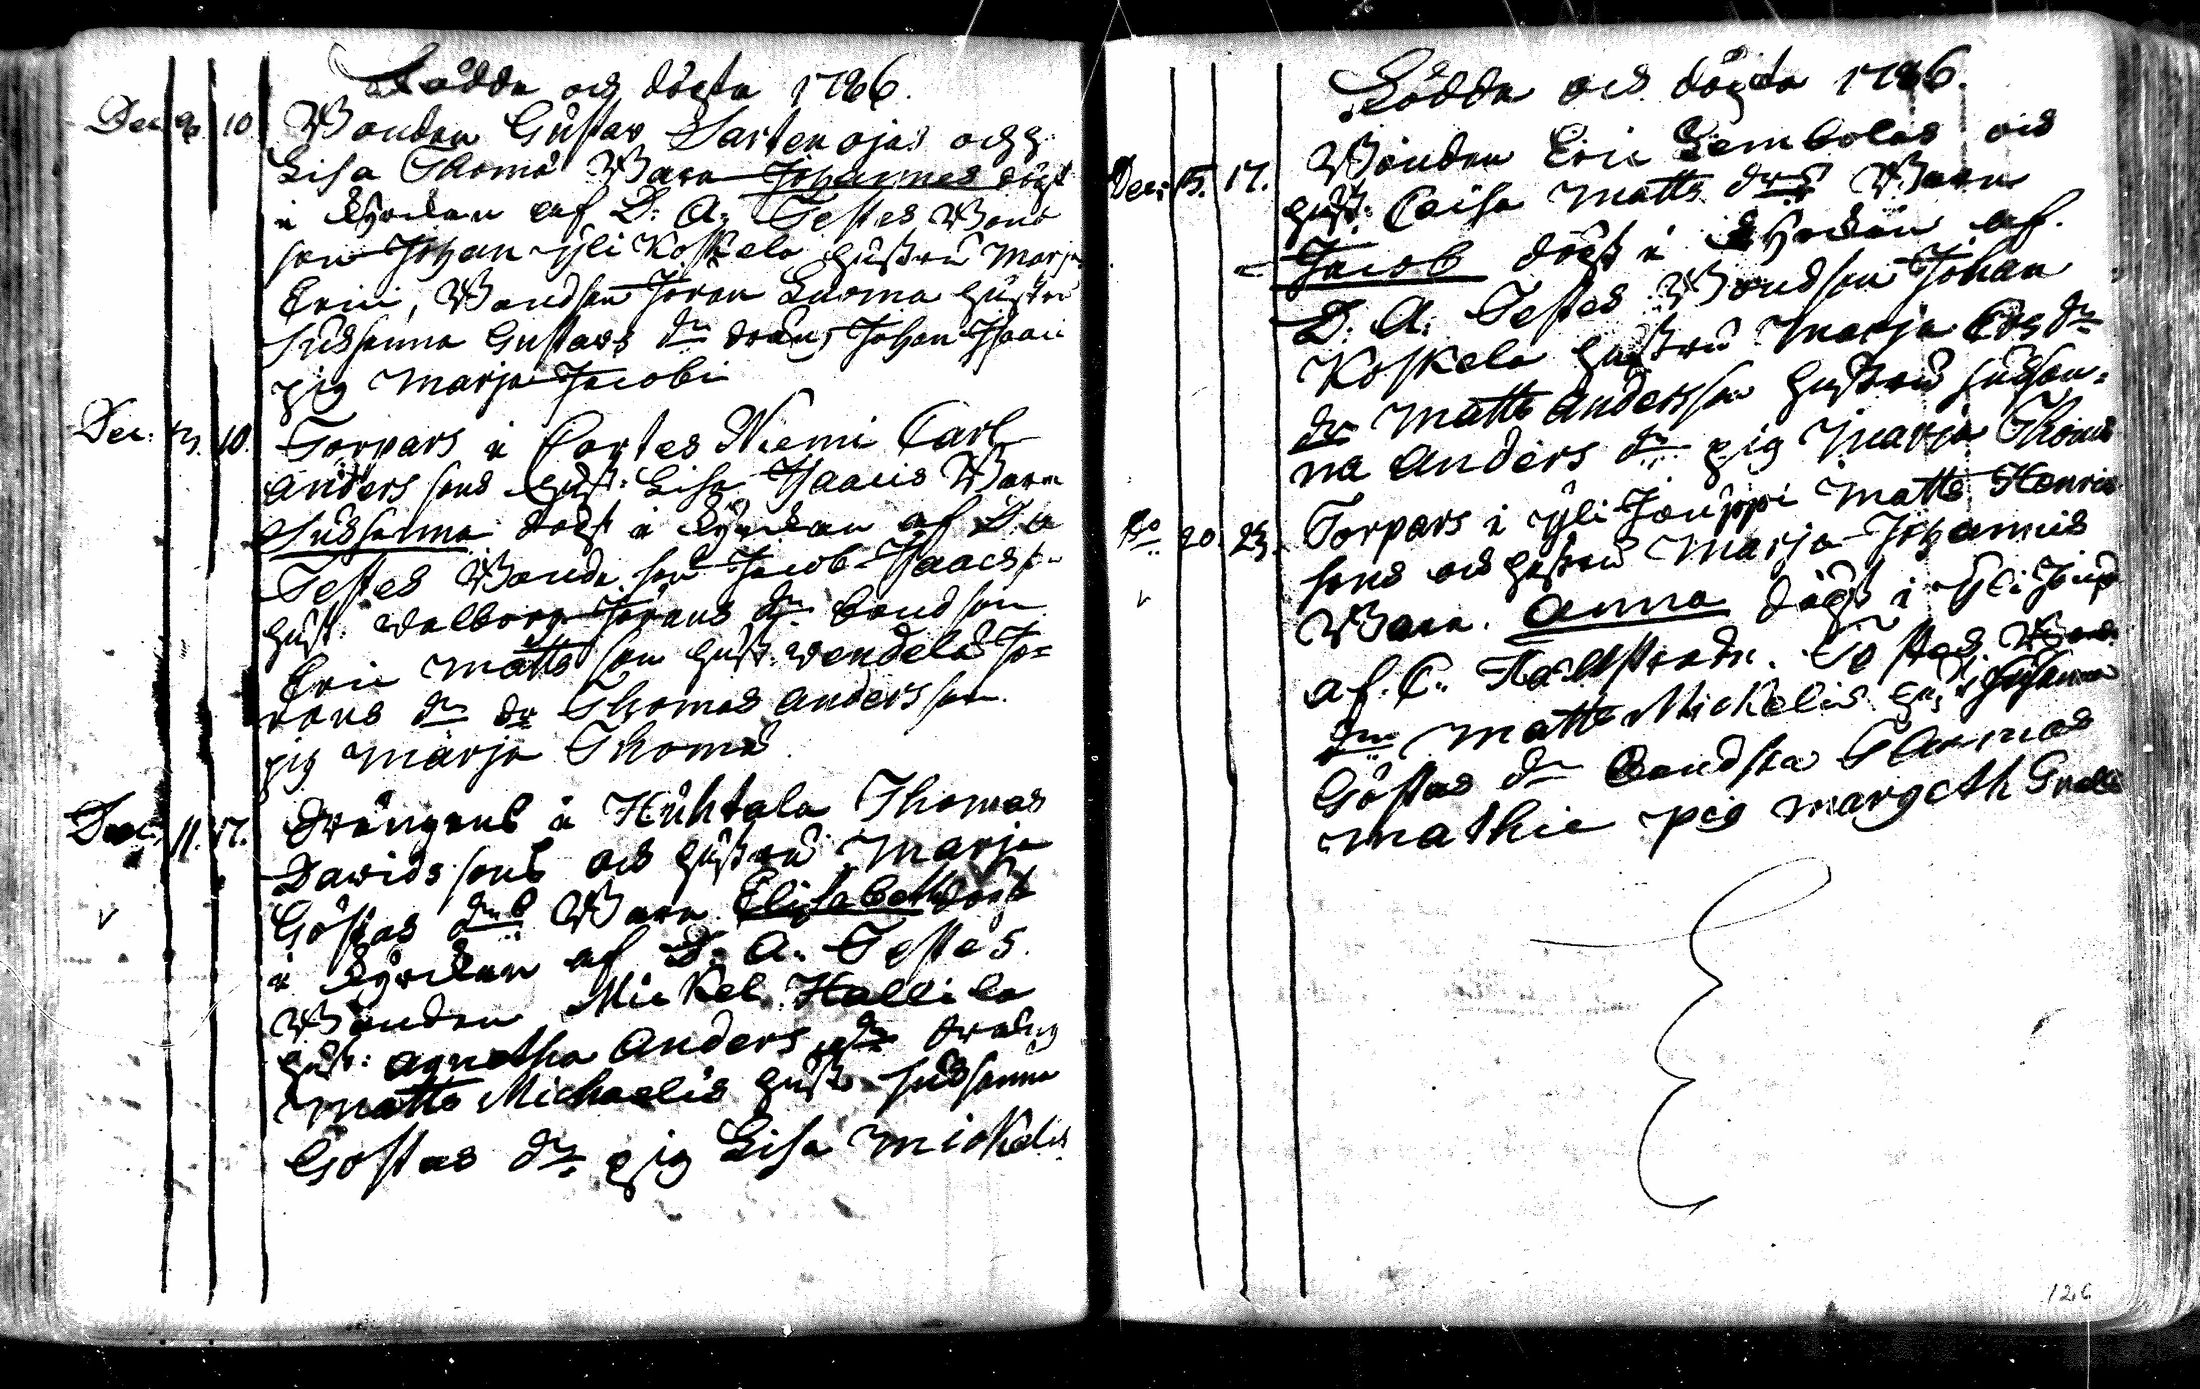 Födde och döpte 1786.
Dec. 9. 10 Bonden Gustav Sartenojas och h.
Lisa Thomæ Barn Johannes döpt
i kyrckan af D: A: Testes Bond
son Johan Yli Koskela hustru Marja
Erici, Bondson Jöran Luoma hustru
Susanna Gustavs dr dräng Johan Isaaci
pig Marja Jacobi
Dec: 10. Torpars å Cortes Niemi Carl
Anders sons hust: Lisa Isaacis Barn
Susanna döpt i kyrckan af D A
Testes Bonde son Jacob Isaacss.
hust: Valborg Jörans dr. bondson
Eric Matts son hust: Vendela Jö=
rans dr dr Thomas Andersson.
pig Marja Thomæ
Dec: 11. 17. drängens å Huhtala Thomas
Davids sons och hustru Marja
Göstas drs Barn Elisabeth döpt
i kyrckan af D: A: Testes.
Bonden Mickel Hallila
hust: Agnetha Anders dr dräng
Matts Michaelis hust Susanna
Göstas dr pig Lisa Mickels
Födde och döpte 1786.
Dec: 15. 17. Bonden Eric Lembolas och
hust: Caisa Matts drs Barn
Jacob döpt i kyrckan af.
D: A: Testes Bondson Johan
Koskela hustru Marja Ers dr
dr Matts Andersson hustru Susan=
na Anders dr pig Marja Thomæ
Do 20. 23. Torpars i Yli Jouppi Matts Henrics
sons och hustru Marja Johannis
Barn. Anna döpt i Yli Joup
af. C. Test. Bond.
Matts Mickelis hust Susanna
Göstas dr Bondson
Mathie pig Margeth
126